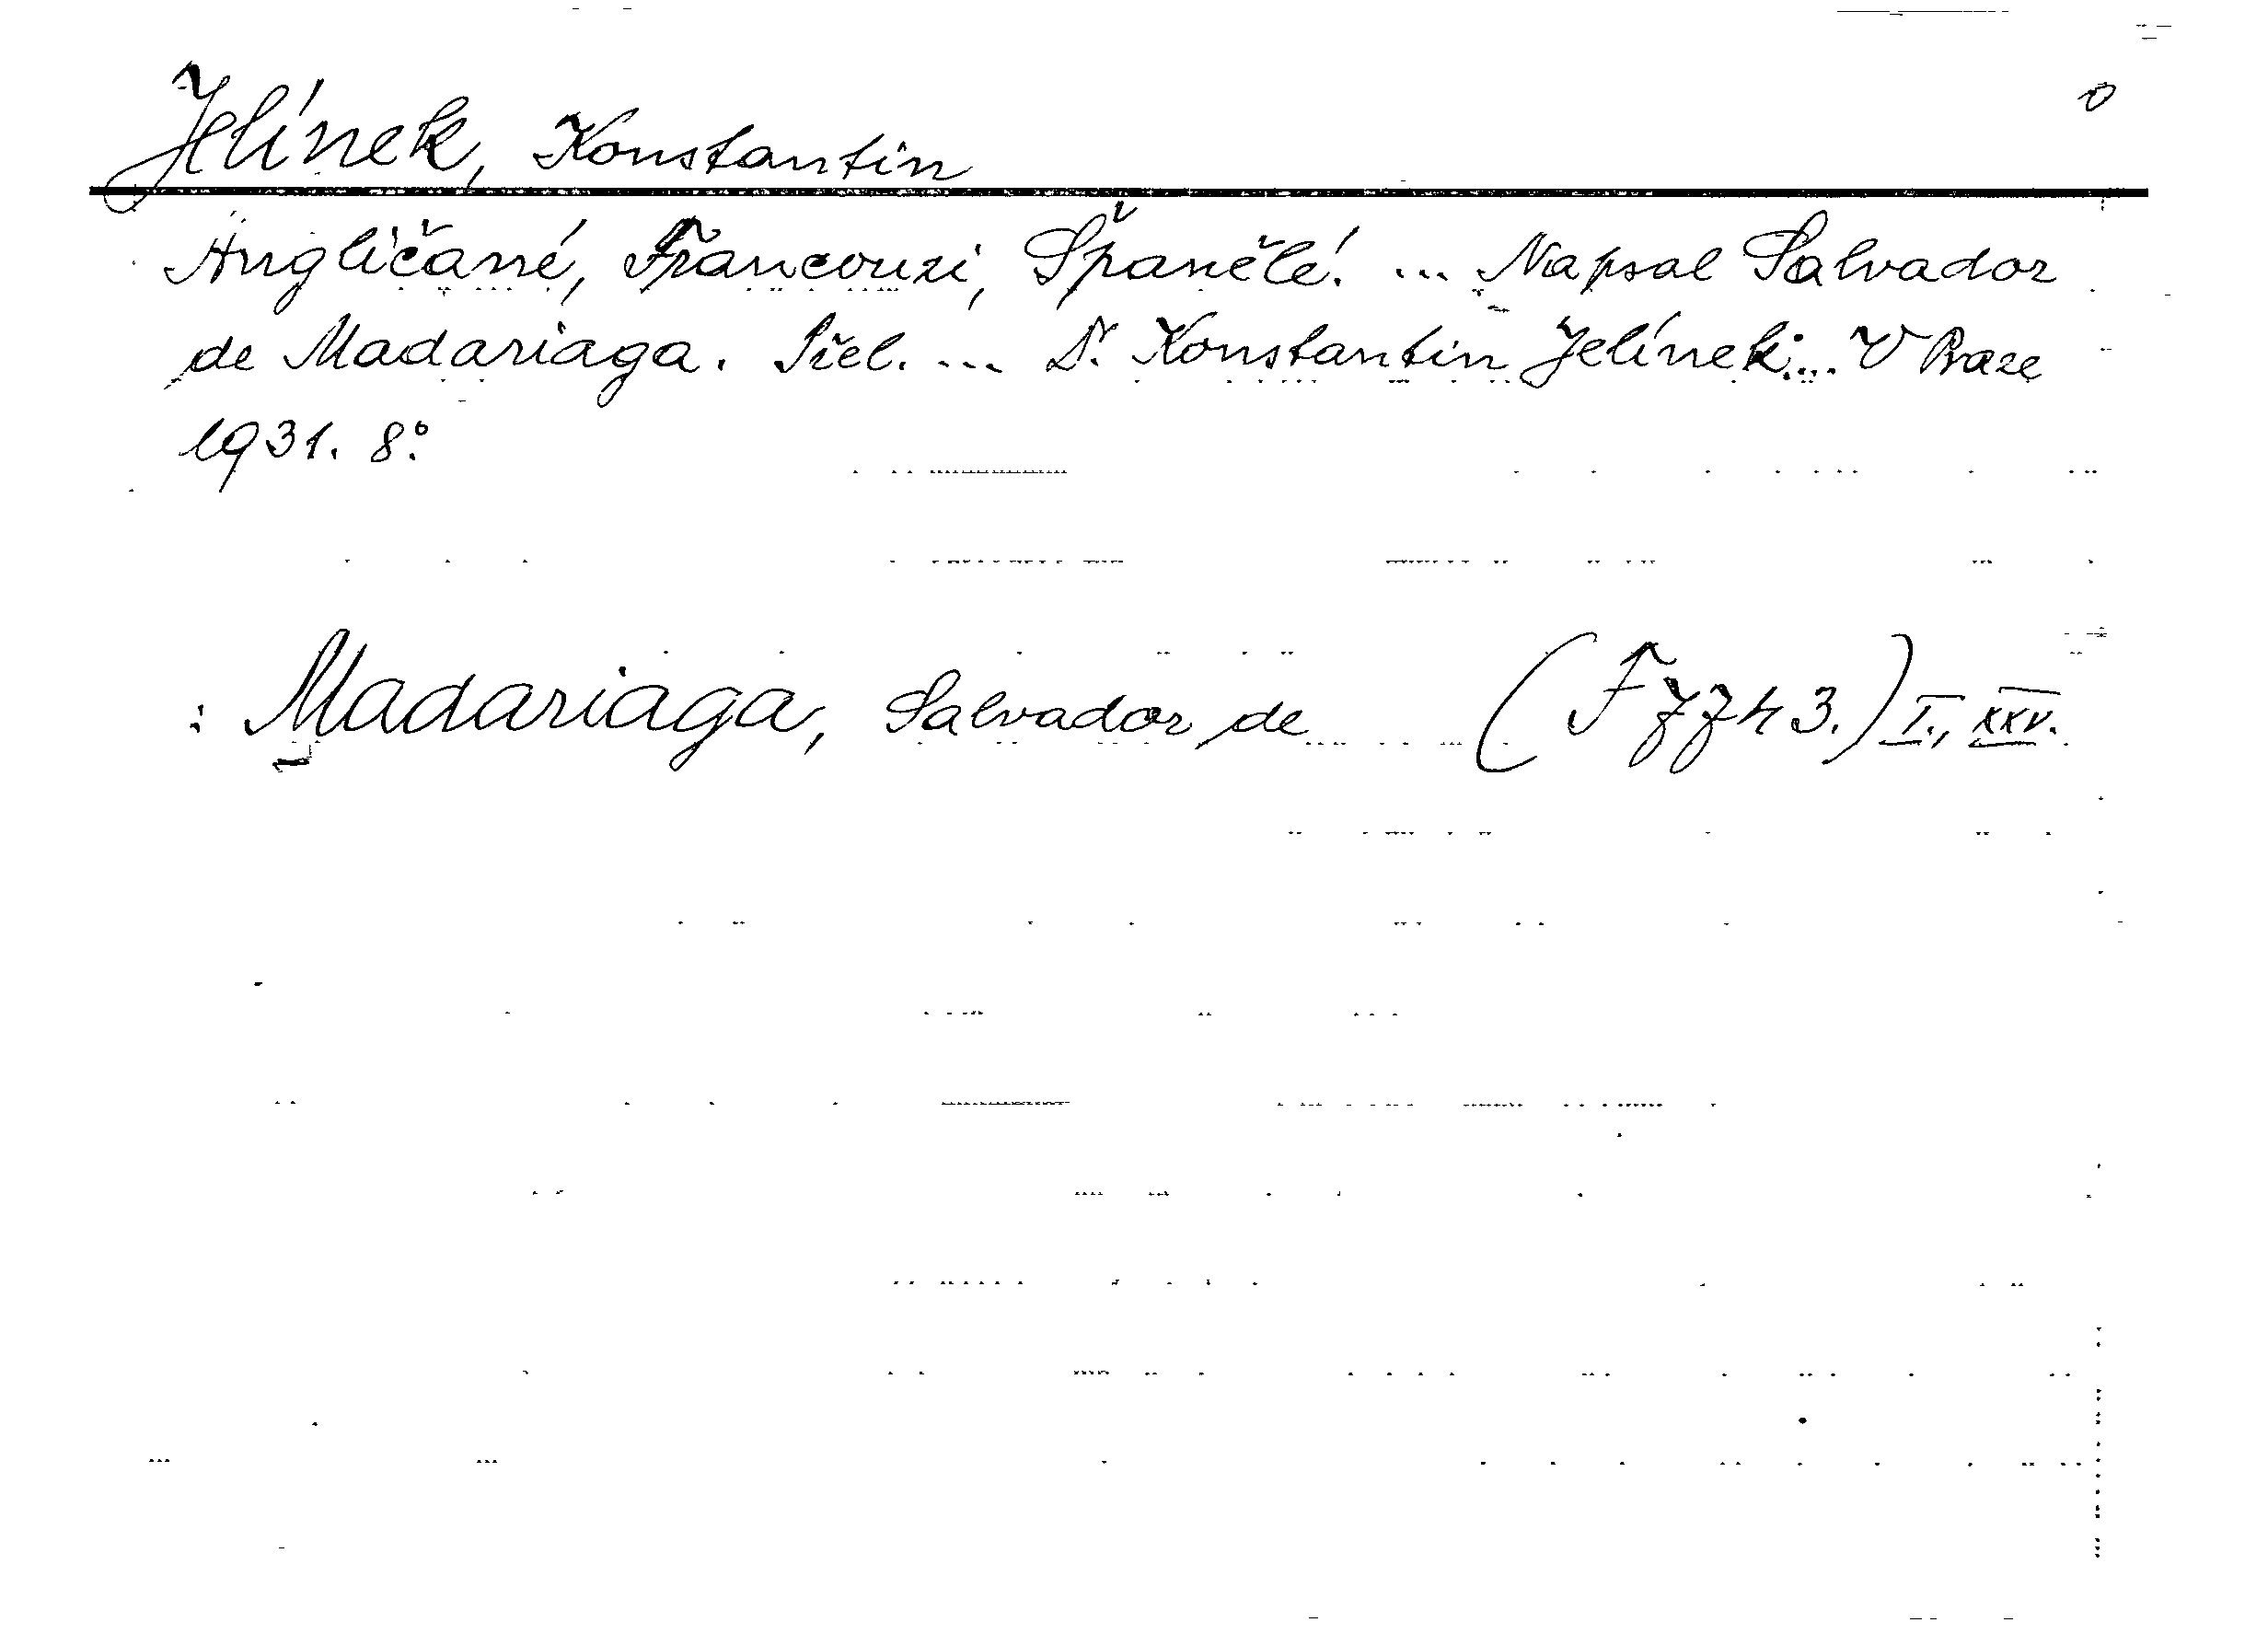 Jelínek, Konstantin
Angličané, Francouzi, Španělé. ... Napsal Salvador
de Madariaga. Přel. ... Dr. Konstantin Jelínek... V Praze
1931. 8°.
: Madariaga, Salvador de (F 7743.) I., XXV.